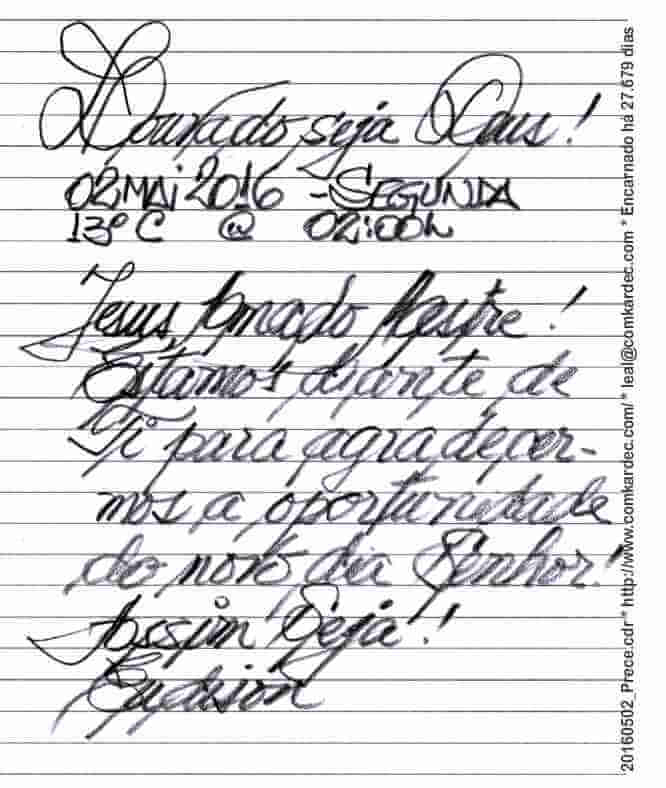 Louvado seja Deus!
02 MAI 2016 - SEGUNDA
13°C @ 02:00h
Jesus, Amado Mestre!
Estamos diante de
Ti para agradecer-
mos a oportunidade
do novo dia Senhor!
Assim Seja!
20160502_Prece.cdr * http://www.comkardec.com/ * leal@comkardec.com * Encarnado há 27.679 dias